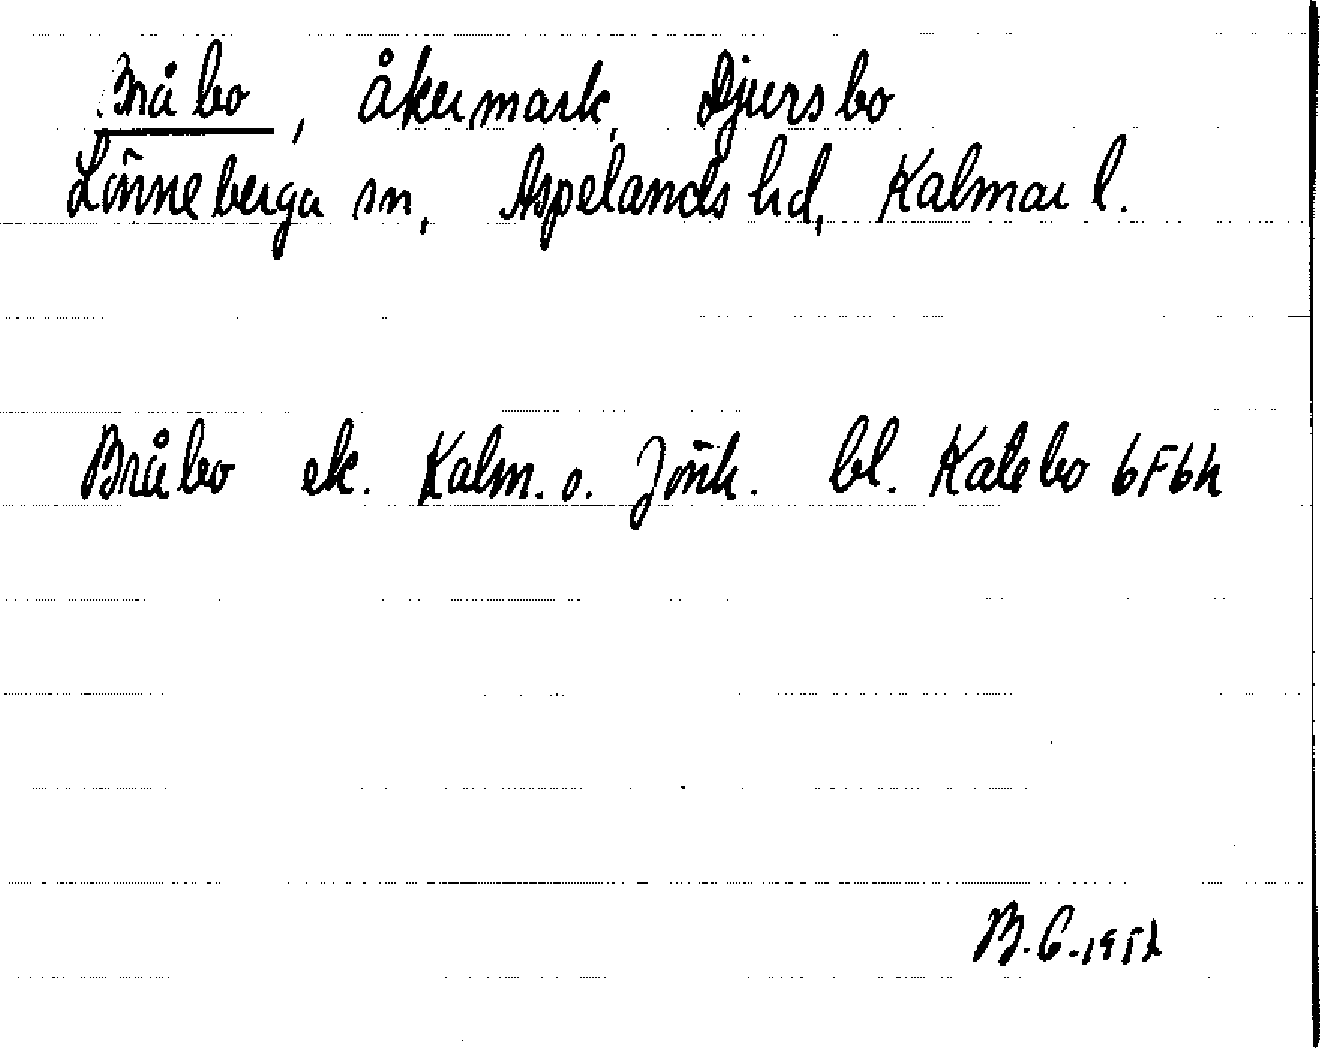 Bråbo, åkermark, Djursbo
Lönneberga sn, Aspelands hd, Kalmar l.
Bråbo ek. Kalm. o. Jönk. bl. Kalebo 6F6h
B.C. 1952